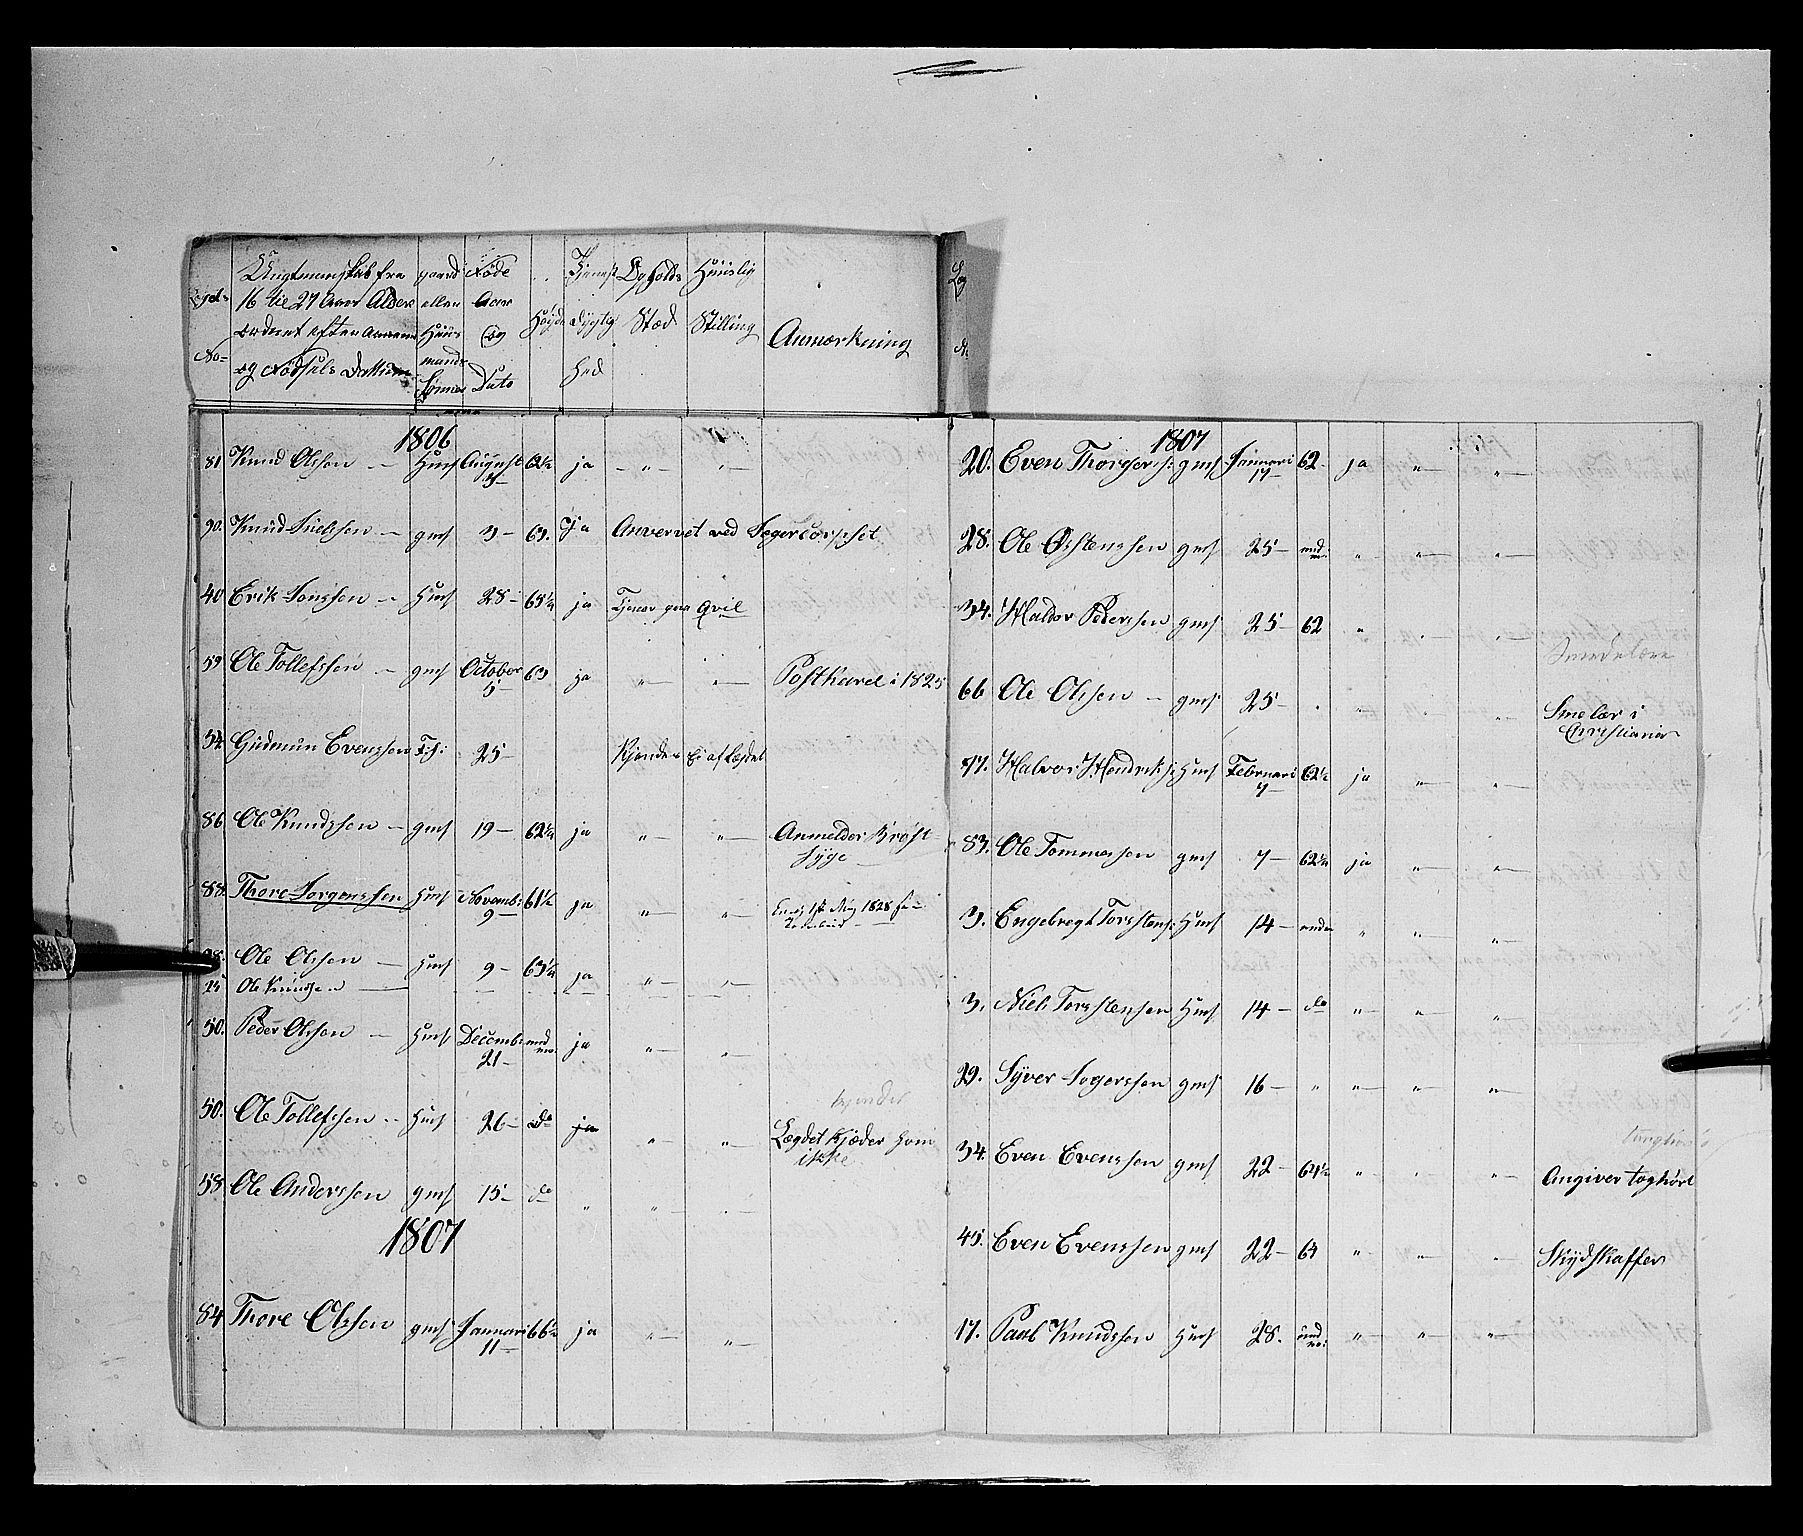 Ungmenskab fra
16 til 27 Aars Alder
ordnet efter Aarene
og Födsels Dattum
gaard
eller
Huus
mands
Sönner
Föde
Aar
og
Dato
Höyde
Tjenest
dygtig
hed
Opholds
Stæd
Huuslig
Stilling
Anmærkning
No
1806
81 Knud Olssen Hms August 3 62½ ja
90. Knud Nielssen gms 3 63. ja Anvervet ved Jegercorpset
40 Erik Jonssen Hms 28 65¼ ja Tjener paa Qvil
59 Ole Tollefssen gms October 5 63 ja Postkarel i 1825
54 Gudmun Evenssen 25 Kjendes Ei af Lægdet
86 Ole Knudssen gms 19 62¼ ja Anmelder Bröst
Syge
88. Thore Jorgenssen Hms Novemb: 9 61½ ja 1828
28. Ole Olssen Hms 9 63¼ ja
25 Ole Knudsen
50. Peder Olssen Hms Decemb: 21 und m: ja
50. Ole Tollefssen Hms 26 do ja Lægdet Kjæder ham
ikke
58 Ole Anderssen gms 15 do
1807
84 Thore Olssen gms Januari 11 66½ ja
1807
20. Even Thorgers: gms Januari 17 62 ja
28. Ole Östenssen gms 25 und m:
34. Haldor Pederssen gms 25 62
Smedelære
66 Ole Olssen gms 25 Sme lær i
Christiania
87. Halvor Hendriks: Hms Februari 7 62½ ja
83. Ole Tommessen gms 7 62¼ ja
3. Engebregt Torstens: Hms 14 under
3. Niels Torsstenssen Hms 14 do
29. Syver Jogerssen gms 16
34. Even Evenssen gms 22 64½ Angiver toghört
45. Even Evenssen gms 22 64 Skydskaffer
17. Paul Knudssen Hms 28. und m: